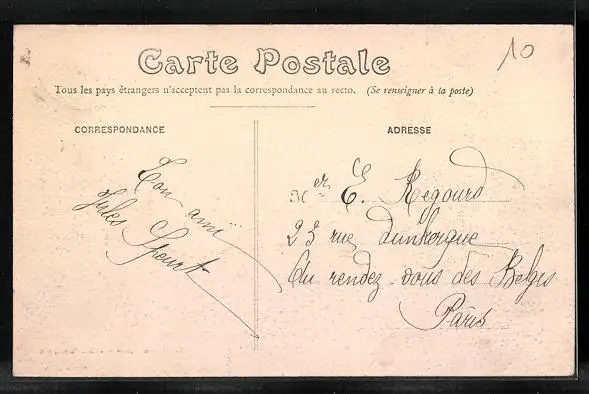 10
Carte Postale
Tous les pays étrangers n'acceptent pas la correspondance au recto. (Se renseigner à la poste)
CORRESPONDANCE
ADRESSE
Ton ami
Jules
Mer E. Regourd
23 rue Dunkerque
Au rendez-vous des Belges
Paris